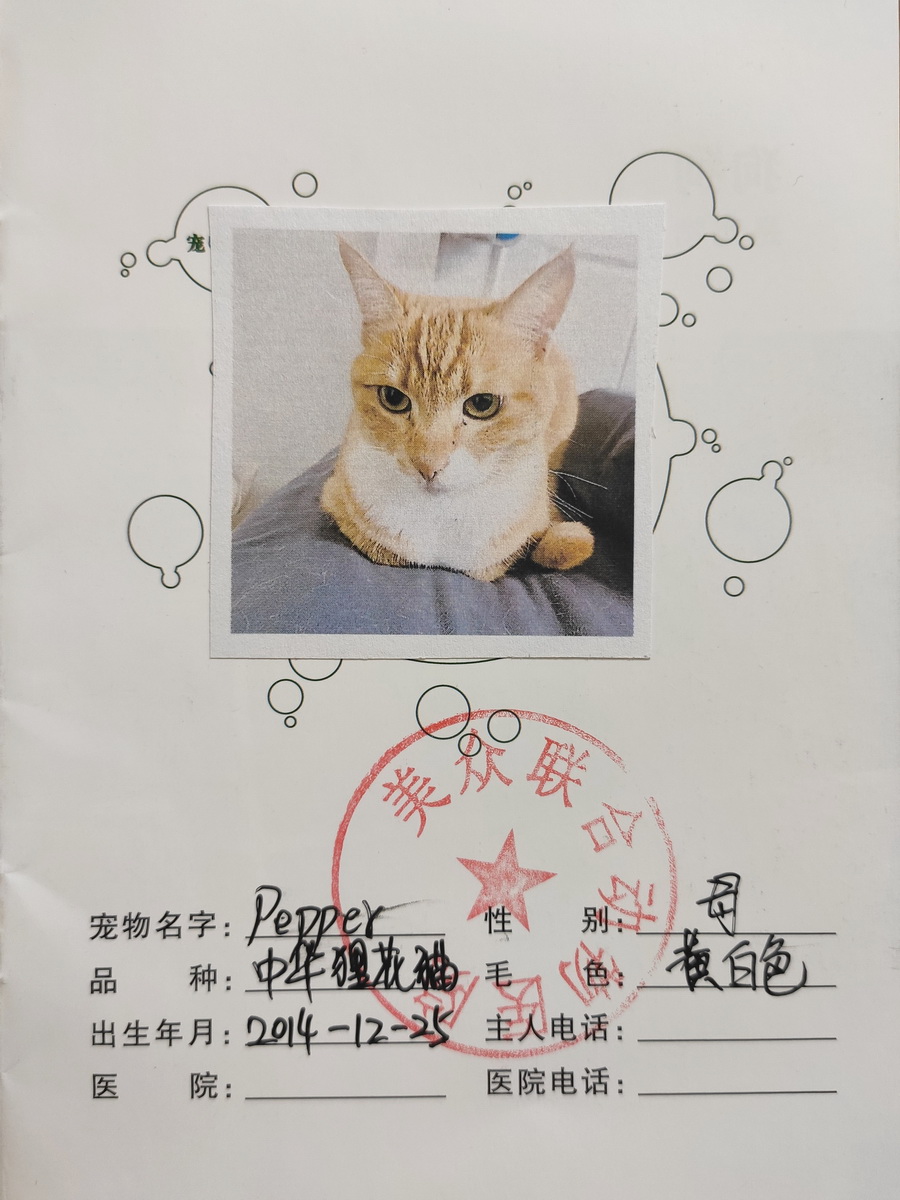 宠
美众联合动物医院
宠物名字： Pepper 性 别： 母
品 种： 中华狸花猫 毛 色： 黄白色
出生年月： 2014-12-25 主人电话：
医 院： 医院电话：